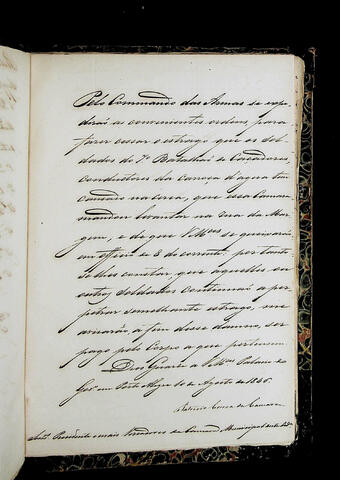 Pelo Commando das Armas se expe-
dirão as convenientes ordens, para
fazer cessar o estrago que os sol-
dados do 7º Batalhão de Caçadores,
conductores da carroça d'agua tem
causado na cerca, que essa Camara
mandou levantar na rua da Mar-
gem, e de que V.Mces se queixarão
em officio de 3 do corrente; por tanto
se lhes constar, que aquelles ou
outros soldados continuão a per-
petrar semelhante estrago, me
avisarão, a fim desse damno, ser
pago pelo Corpo a que pertencem.
Deos Guarde a V.Mces Palacio do
Gov. em Porto Alegre 10 de Agosto de 1846.
Patricio Correa da Camara
Snrs. Presidente e mais Vereadores da Camara Municipal desta